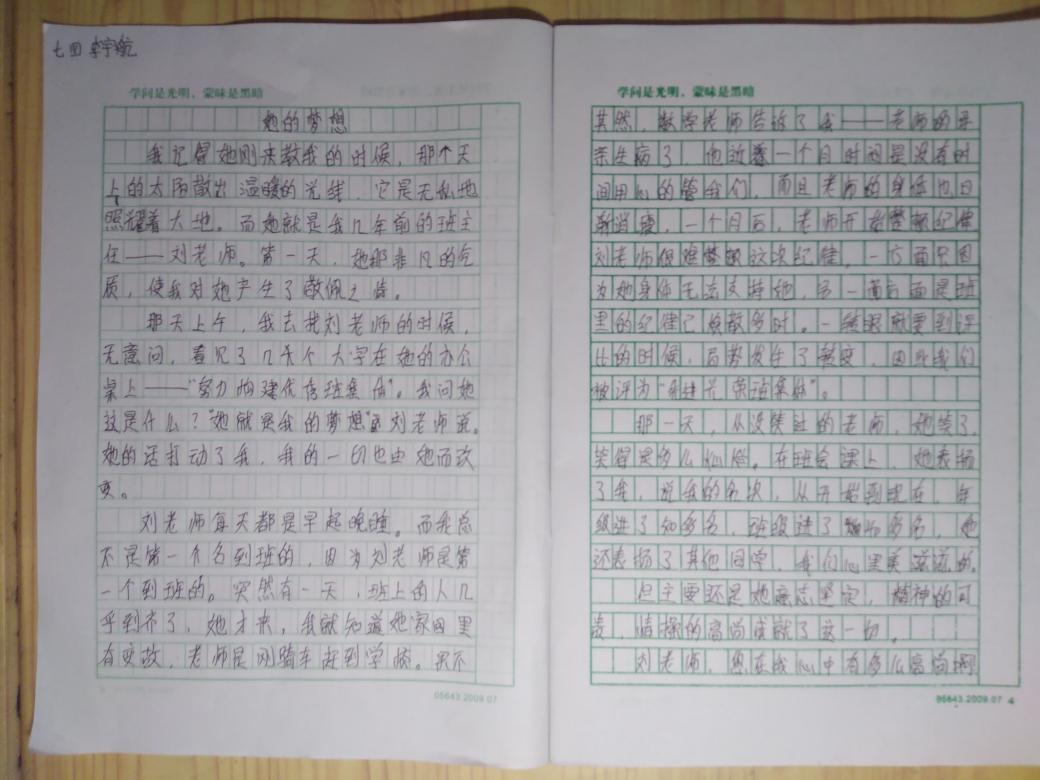 七四 李宇航
学问是光明，蒙昧是黑暗
她的梦想
我记得她刚来教我的时候，那个天
上的太阳散出温暖的光线，它是无私地
照耀着大地。而她就是我几年前的班主
任——刘老师。第一天，她那非凡的气
质，使我对她产生了敬佩之情。
那天上午，我去找刘老师的时候，
无意间，看见了几个大字在她的办公
桌上——"努力构建优秀班集体"。我问她
这是什么？"她就是我的梦想"刘老师说。
她的话打动了我，我的一切也由她而改
变。
刘老师每天都是早起晚睡。而我总
不是第一个名到班的，因为刘老师是第
一个到班的。突然有一天，班上的人几
乎到齐了，她才来，我就知道她家里
有变故，老师是刚骑车赶到学校。果不
05643.2009.07
学问是光明，蒙昧是黑暗
其然，数学老师告诉了我——老师的母
亲生病了，他这一个月时间是没有时
间用心的管我们，而且老师的身体也日
渐消瘦，一个月后，老师开始整顿纪律
刘老师很难整顿这次纪律。一方面是因
为她身体无法支撑她，另一方面是班
里的纪律已涣散多时。一转眼就要到评
比的时候，局势发生了转变，因此我们
被评为"光荣班集体"。
那一天，从没笑过的老师，她笑了，
笑得是多么灿烂。在班会课上，她表扬
了我，说我的名次，从开始到现在，年
级进了多名，班级进了多名，她
还表扬了其他同学，我们心里美滋滋的。
但主要还是她意志坚定，精神的可
贵，情操的高尚成就了这一切。
刘老师，您在我心中有多么高尚啊
05643.2009.07 4